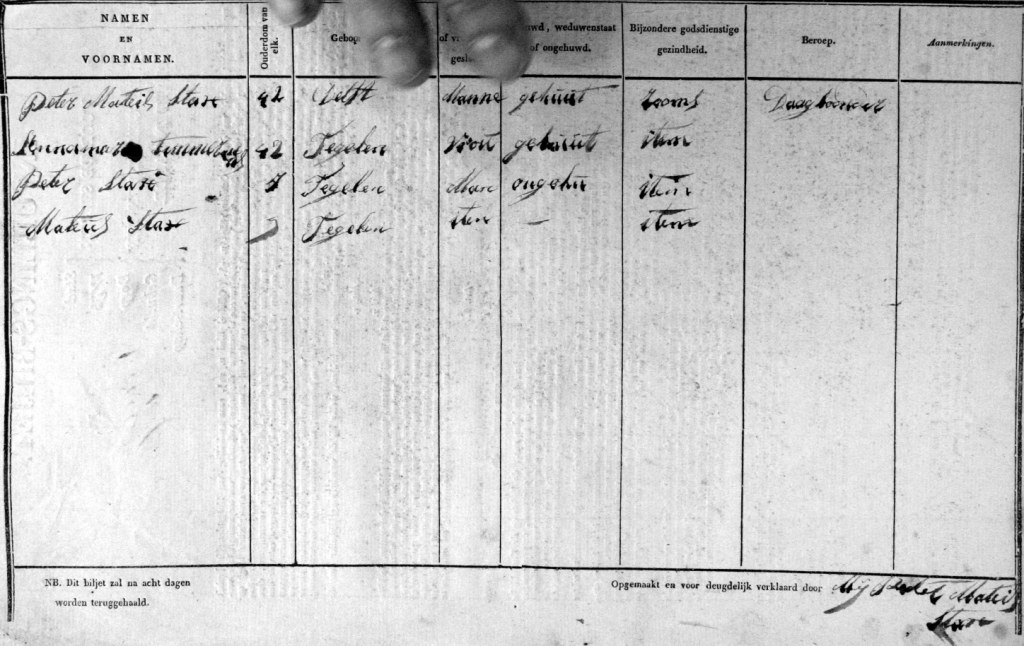 NAMEN EN VOORNAMEN. Ouderdom van elk. of ongehuwd. Bijzondere godsdienstige gezindheid. Beroep. Aanmerkingen.
Peter Mateis Stax 42 Delft Manne gehuut Rooms
42 Tegelen vrou gehuut item
Peter Stax Tegelen Man ongehu item
Mateis Stax Tegelen item — item
NB. Dit biljet zal na acht dagen
worden teruggehaald.
Opgemaakt en voor deugdelijk verklaard door Mij Peeter Mateis
Stax